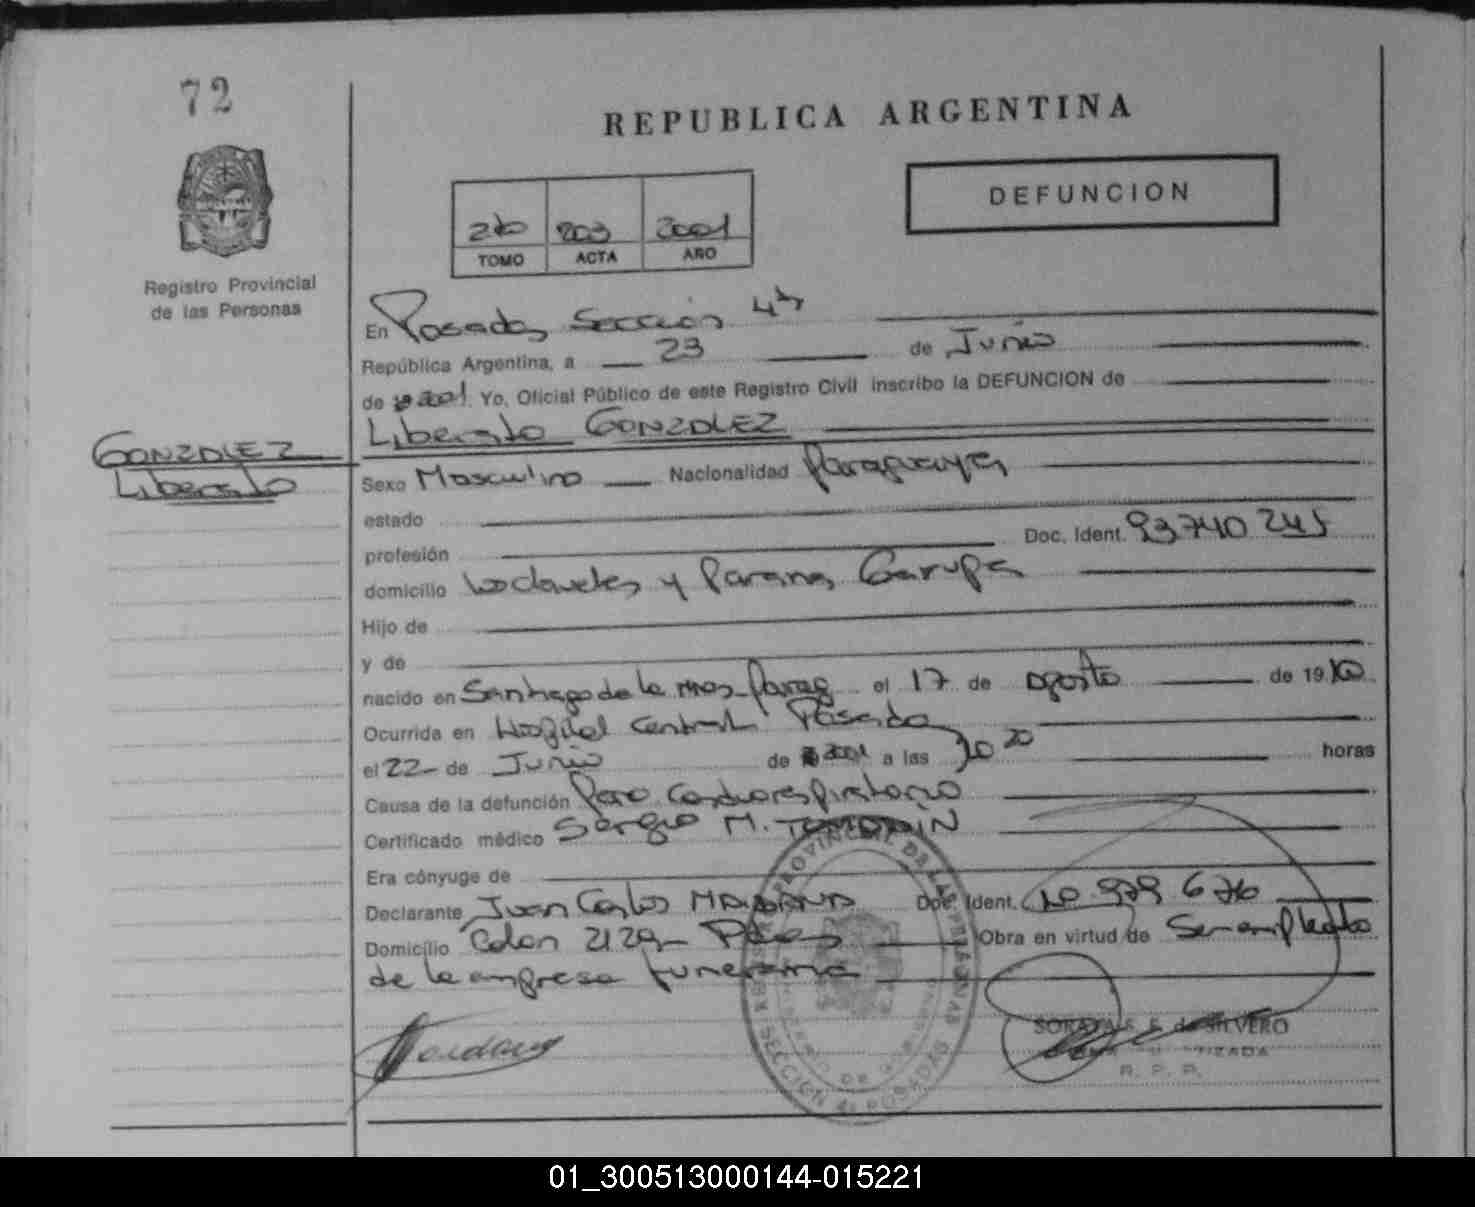 72
REPUBLICA ARGENTINA
DEFUNCION
2do 203 2001
TOMO ACTA AÑO
Registro Provincial
de las Personas
En Posadas Sección 4ta
República Argentina, a 23 de Junio
de 2001 Yo, Oficial Público de este Registro Civil inscribo la DEFUNCION de
Liberato GONZALEZ
GONZALEZ
Liberato
Sexo Masculino Nacionalidad Paraguaya
estado
profesión Doc. Ident. 93740245
domicilio y Parana Garupa
Hijo de
y de
nacido en Santiago de la Parag el 17 de agosto de 1910
Ocurrida en Hospital Central Posadas
el 22 de Junio de 2001 a las 20 horas
Causa de la defunción Paro Cardiorespiratorio
Certificado médico Sergio M.
Era cónyuge de
Declarante Juan Carlos Doc. Ident. 10 979 676
Domicilio Colon 2129 Obra en virtud de Ser empleado
de la empresa funeraria
REGISTRO PROVINCIAL DE LAS PERSONAS
MINISTERIO DE GOBIERNO
SECCION 4a POSADAS
SORAYA S. E. de SILVERO
R. P. P.
01_300513000144-015221